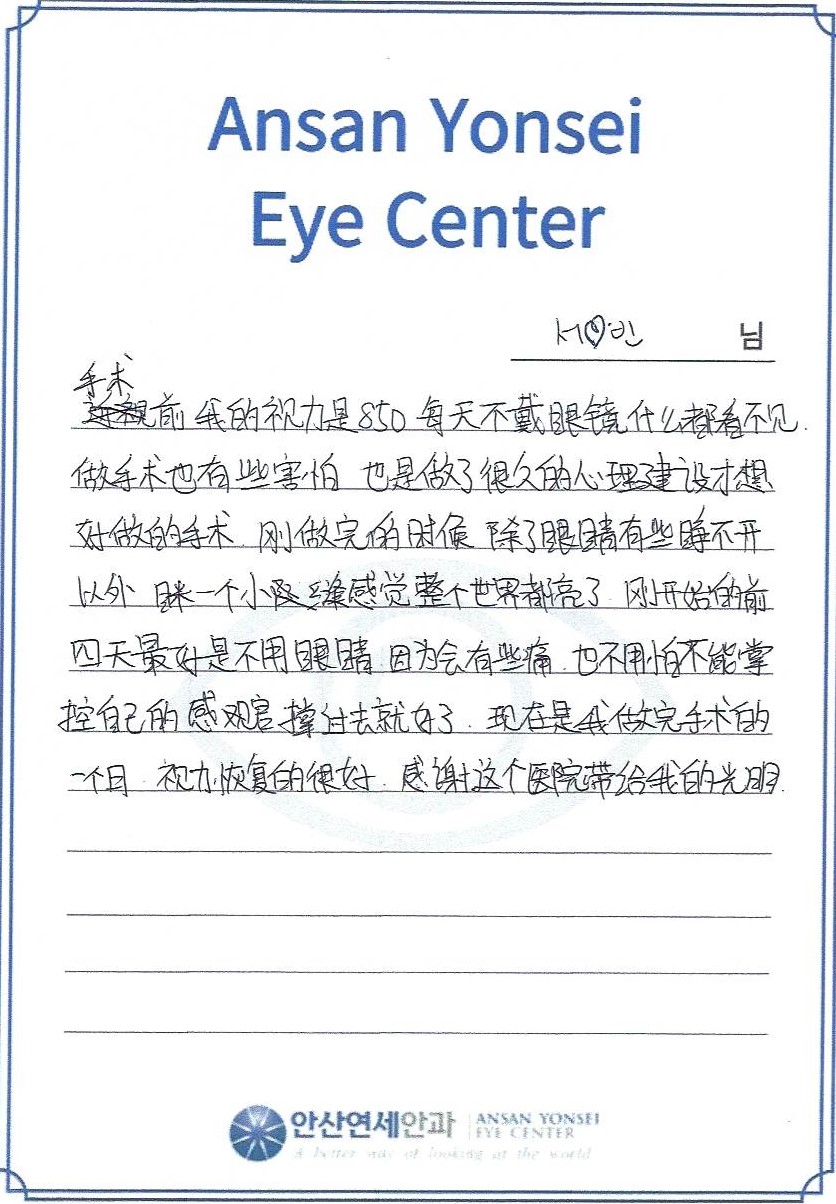 Ansan Yonsei
Eye Center
서♡빈 님
手术
近视前 我的视力是850 每天不戴眼镜什么都看不见.
做手术也有些害怕 也是做了很久的心理建设才想
好做的手术. 刚做完的时候 除了眼睛有些睁不开
以外 眯一个小区缝感觉整个世界都亮了. 刚开始的前
四天最好是不用眼睛. 因为会有些痛. 也不用怕不能掌
控自己的感观官 撑过去就好了. 现在是我做完手术的
一个月. 视力恢复的很好. 感谢这个医院带给我的光明.
안산연세안과
ANSAN YONSEI
EYE CENTER
A better way of looking at the world